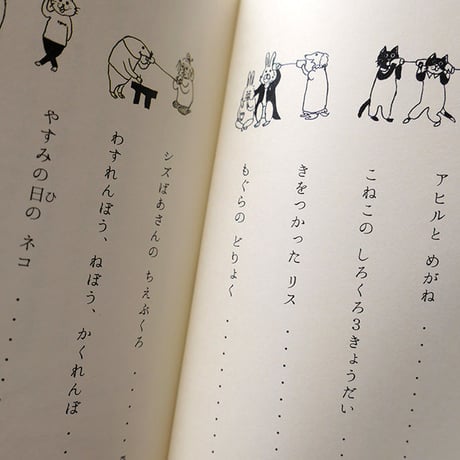 アヒルと めがね
こねこの しろくろ3きょうだい
きをつかった リス
もぐらの どりょく
シズばあさんの ちえぶくろ
わすれんぼう、ねぼう、かくれんぼ
やすみの日の ネコ
ひ